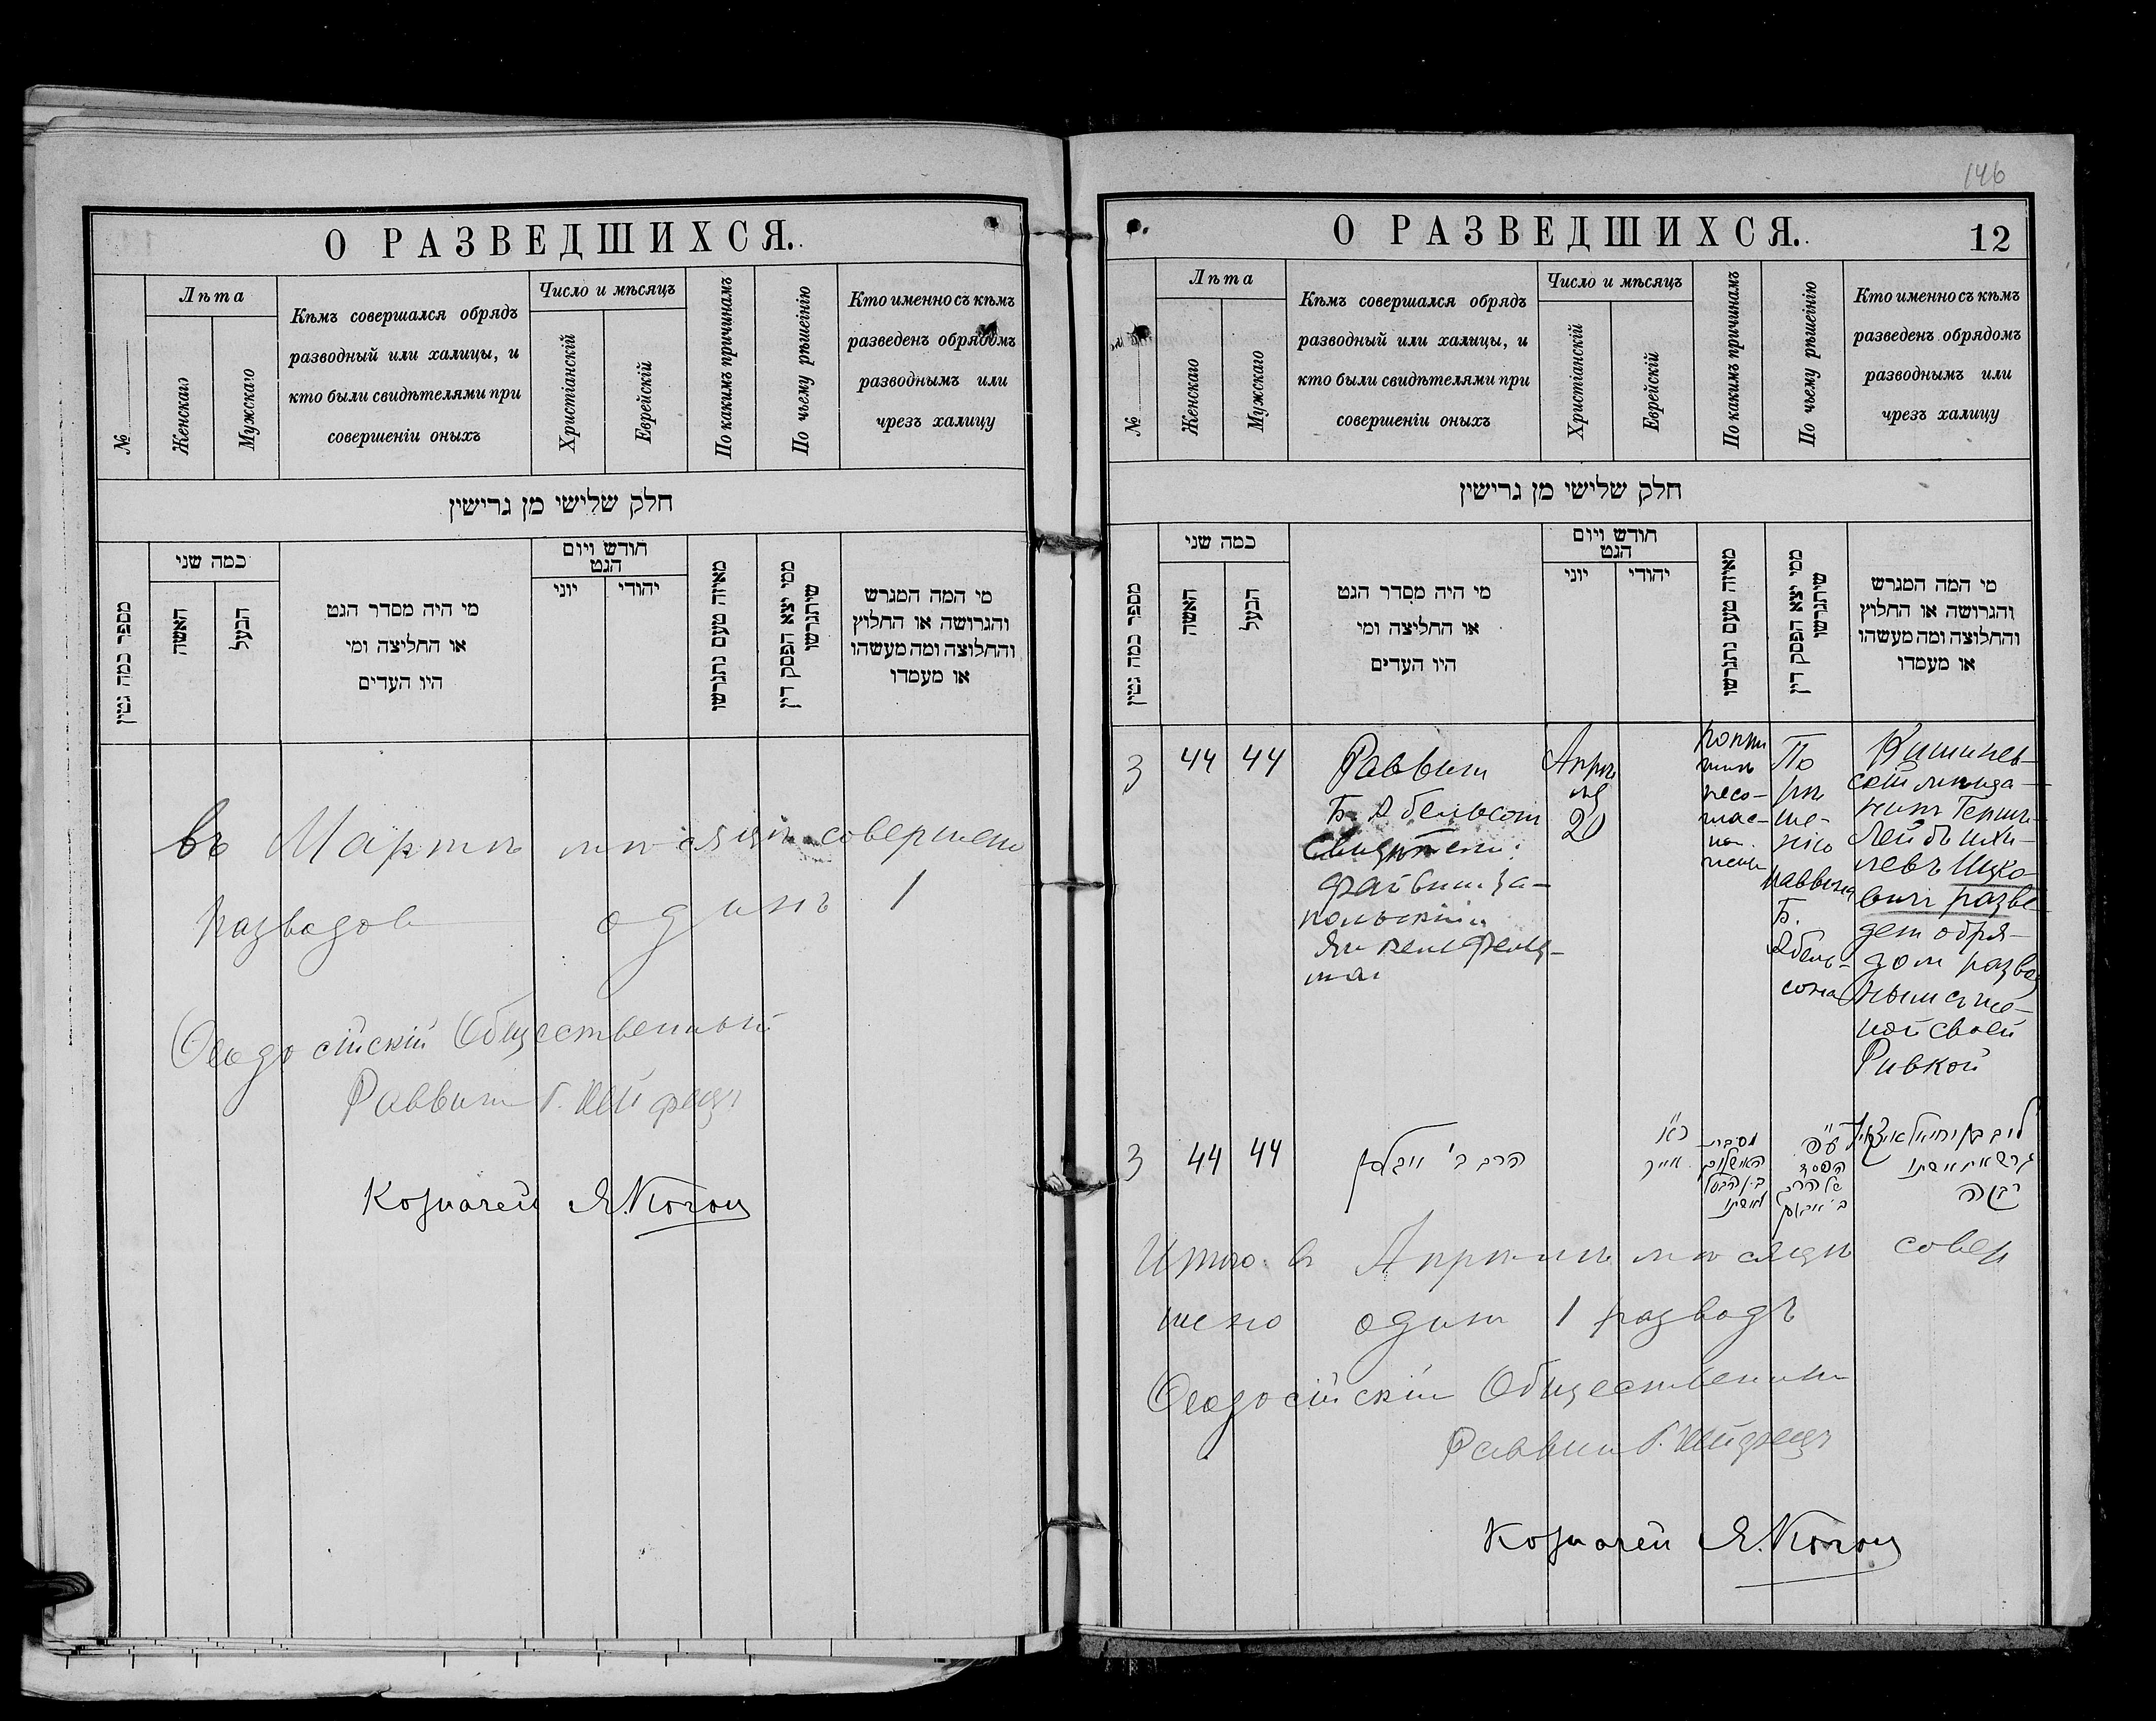 О РАЗВЕДШИХСЯ.
№
Лѣта
Женскаго
Мужскаго
Кѣмъ совершался обрядъ
разводный или халицы, и
кто были свидѣтелями при
совершеніи оныхъ
Число и мѣсяцъ
Христіанскій
Еврейскій
По какимъ причинамъ
По чьему рѣшеінію
Кто именно съ кѣмъ
разведенъ обрядомъ
разводнымъ или
чрезъ халицу
חלק שלישי מן גרישין
מספר כמה גטין
כמה שני
האשה
הבעל
מי היה מסדר הגט
או החליצה ומי
היו העדים
חודש ויום
הגט
יוני
יהודי
מאיזה טעם נתגרשו
ממי יצא הפסק דין
שיתגרשו
מי המה המגרש
והגרושה או החלוץ
והחלוצה ומה מעשהו
או מעמדו
въ Мартѣ мѣсяцѣ совершено
разводов одинъ 1
Ѳеодосійскій Общественный
Раввин
Казначей Я. Коган
146
О РАЗВЕДШИХСЯ.
12
№
Лѣта
Женскаго
Мужскаго
Кѣмъ совершался обрядъ
разводный или халицы, и
кто были свидѣтелями при
совершеніи оныхъ
Число и мѣсяцъ
Христіанскій
Еврейскій
По какимъ причинамъ
По чьему рѣшеінію
Кто именно съ кѣмъ
разведенъ обрядомъ
разводнымъ или
чрезъ халицу
חלק שלישי מן גרישין
מספר כמה גטין
כמה שני
האשה
הבעל
מי היה מסדר הגט
או החליצה ומי
היו העדים
חודש ויום
הגט
יוני
יהודי
מאיזה טעם נתגרשו
ממי יצא הפסק דין
שיתגרשו
מי המה המגרש
והגרושה או החלוץ
והחלוצה ומה מעשהו
או מעמדו
3
44
44
Раввин
Б. Абельсон
Свидѣтели:
Апрѣ
ля
20
По
рѣ
ше-
нію
раввина
Б.
Абель-
сона
Кишинев-
скій мѣща-
нин Герш-
Лейб Ихи-
левъ Ицко
вич разве
ден обря-
дом развод
ным с же-
ной своей
Ривкой
3
44
44
הרב ב'
אייר
ע"פ
הפסד
של הרב
גרש את אשתו
רבקה
Итого в Апрѣлѣ мѣсяцѣ совер
шено один 1 разводъ
Ѳеодосійскій Общественный
Раввин
Казначей Я. Коган